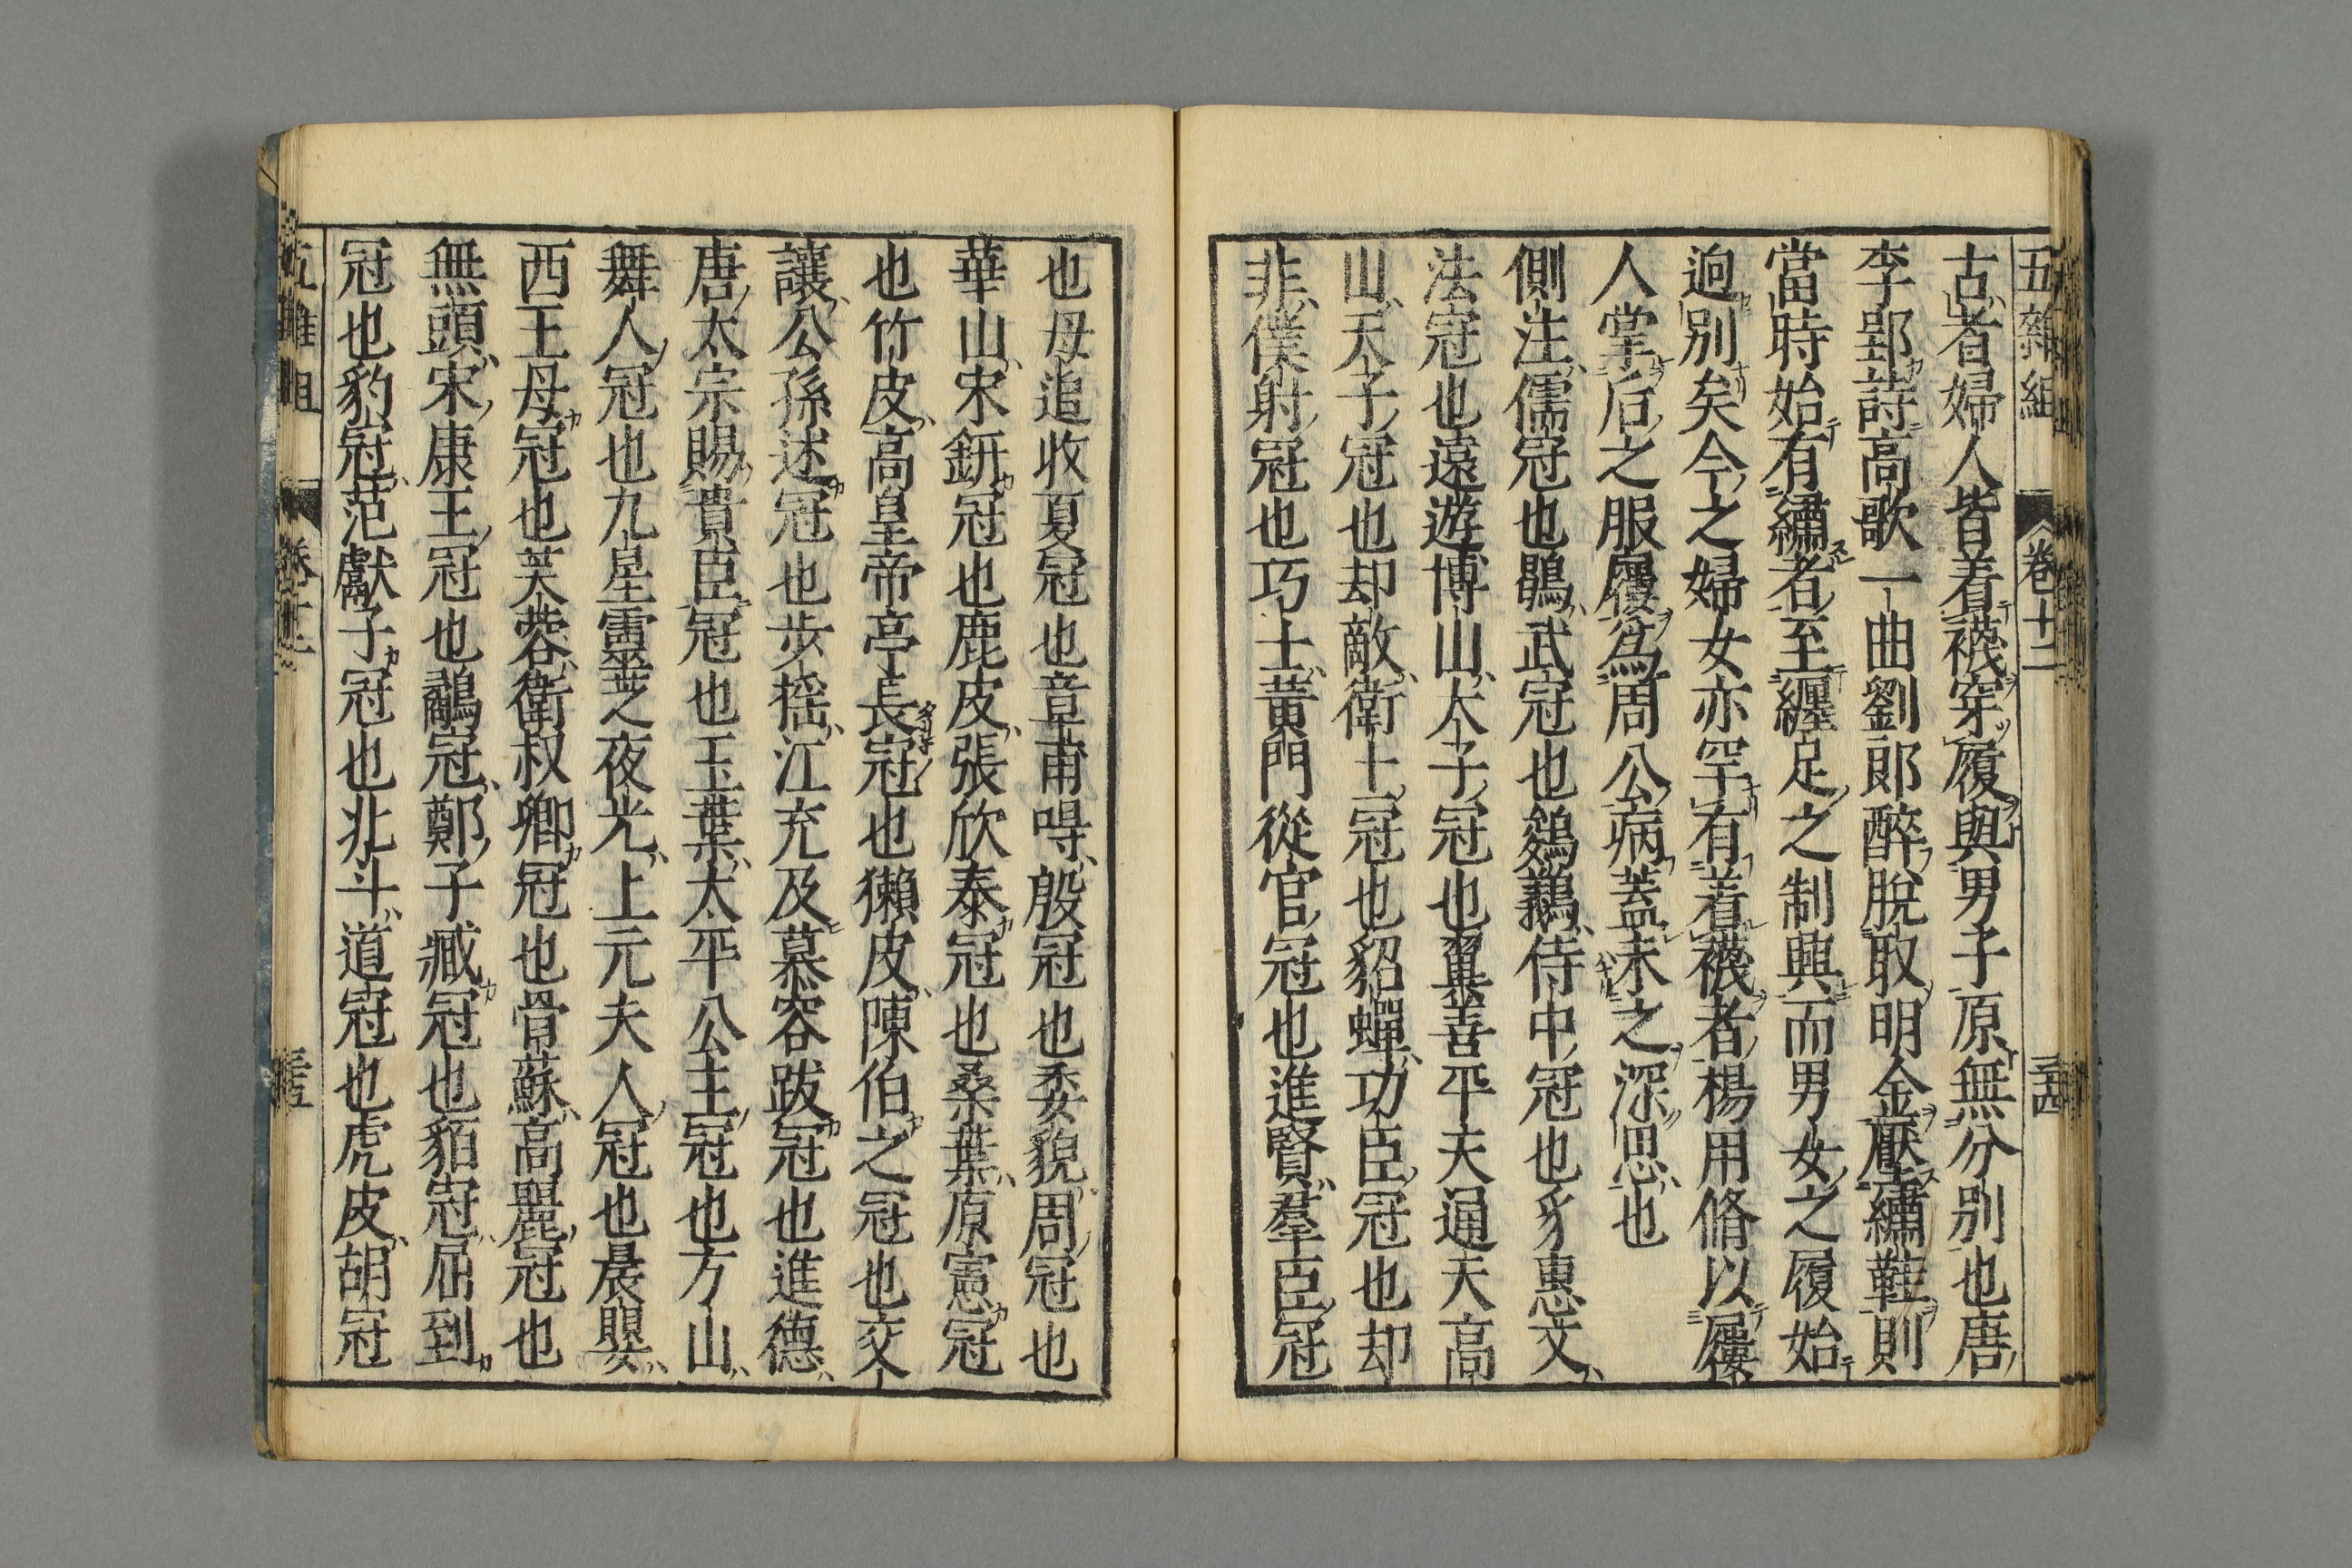 五雜組 卷十二 三十四
古者婦人皆着襪穿履與男子原無分別也唐
李郢詩高歌一曲劉郎醉脫取明金壓繡鞋則
當時始有繡者至纏足之制興而男女之履始
逈別矣今之婦女亦罕有着襪者楊用脩以屨
人掌后之服屨為周公病蓋未之深思也
側注儒冠也鶡武冠也鵕鸃侍中冠也豸惠文
法冠也遠遊博山太子冠也翼善平天通天高
山天子冠也却敵衛士冠也貂蟬功臣冠也却
非僕射冠也巧士黃門從官冠也進賢羣臣冠
也母追收夏冠也章甫冔殷冠也委貌周冠也
華山宋鈃冠也鹿皮張欣泰冠也桑葉原憲冠
也竹皮高皇帝亭長冠也獺皮陳伯之冠也交
讓公孫述冠也步搖江充及慕容跋冠也進德
唐太宗賜貴臣冠也玉葉太平公主冠也方山
舞人冠也九星靈芝夜光上元夫人冠也晨嬰
西王母冠也芙蓉衛叔卿冠也骨蘇高麗冠也
無頭宋康王冠也鷸冠鄭子臧冠也貊冠屈到
冠也豹冠范獻子冠也北斗道冠也虎皮胡冠
五雜組 卷十二 三十五